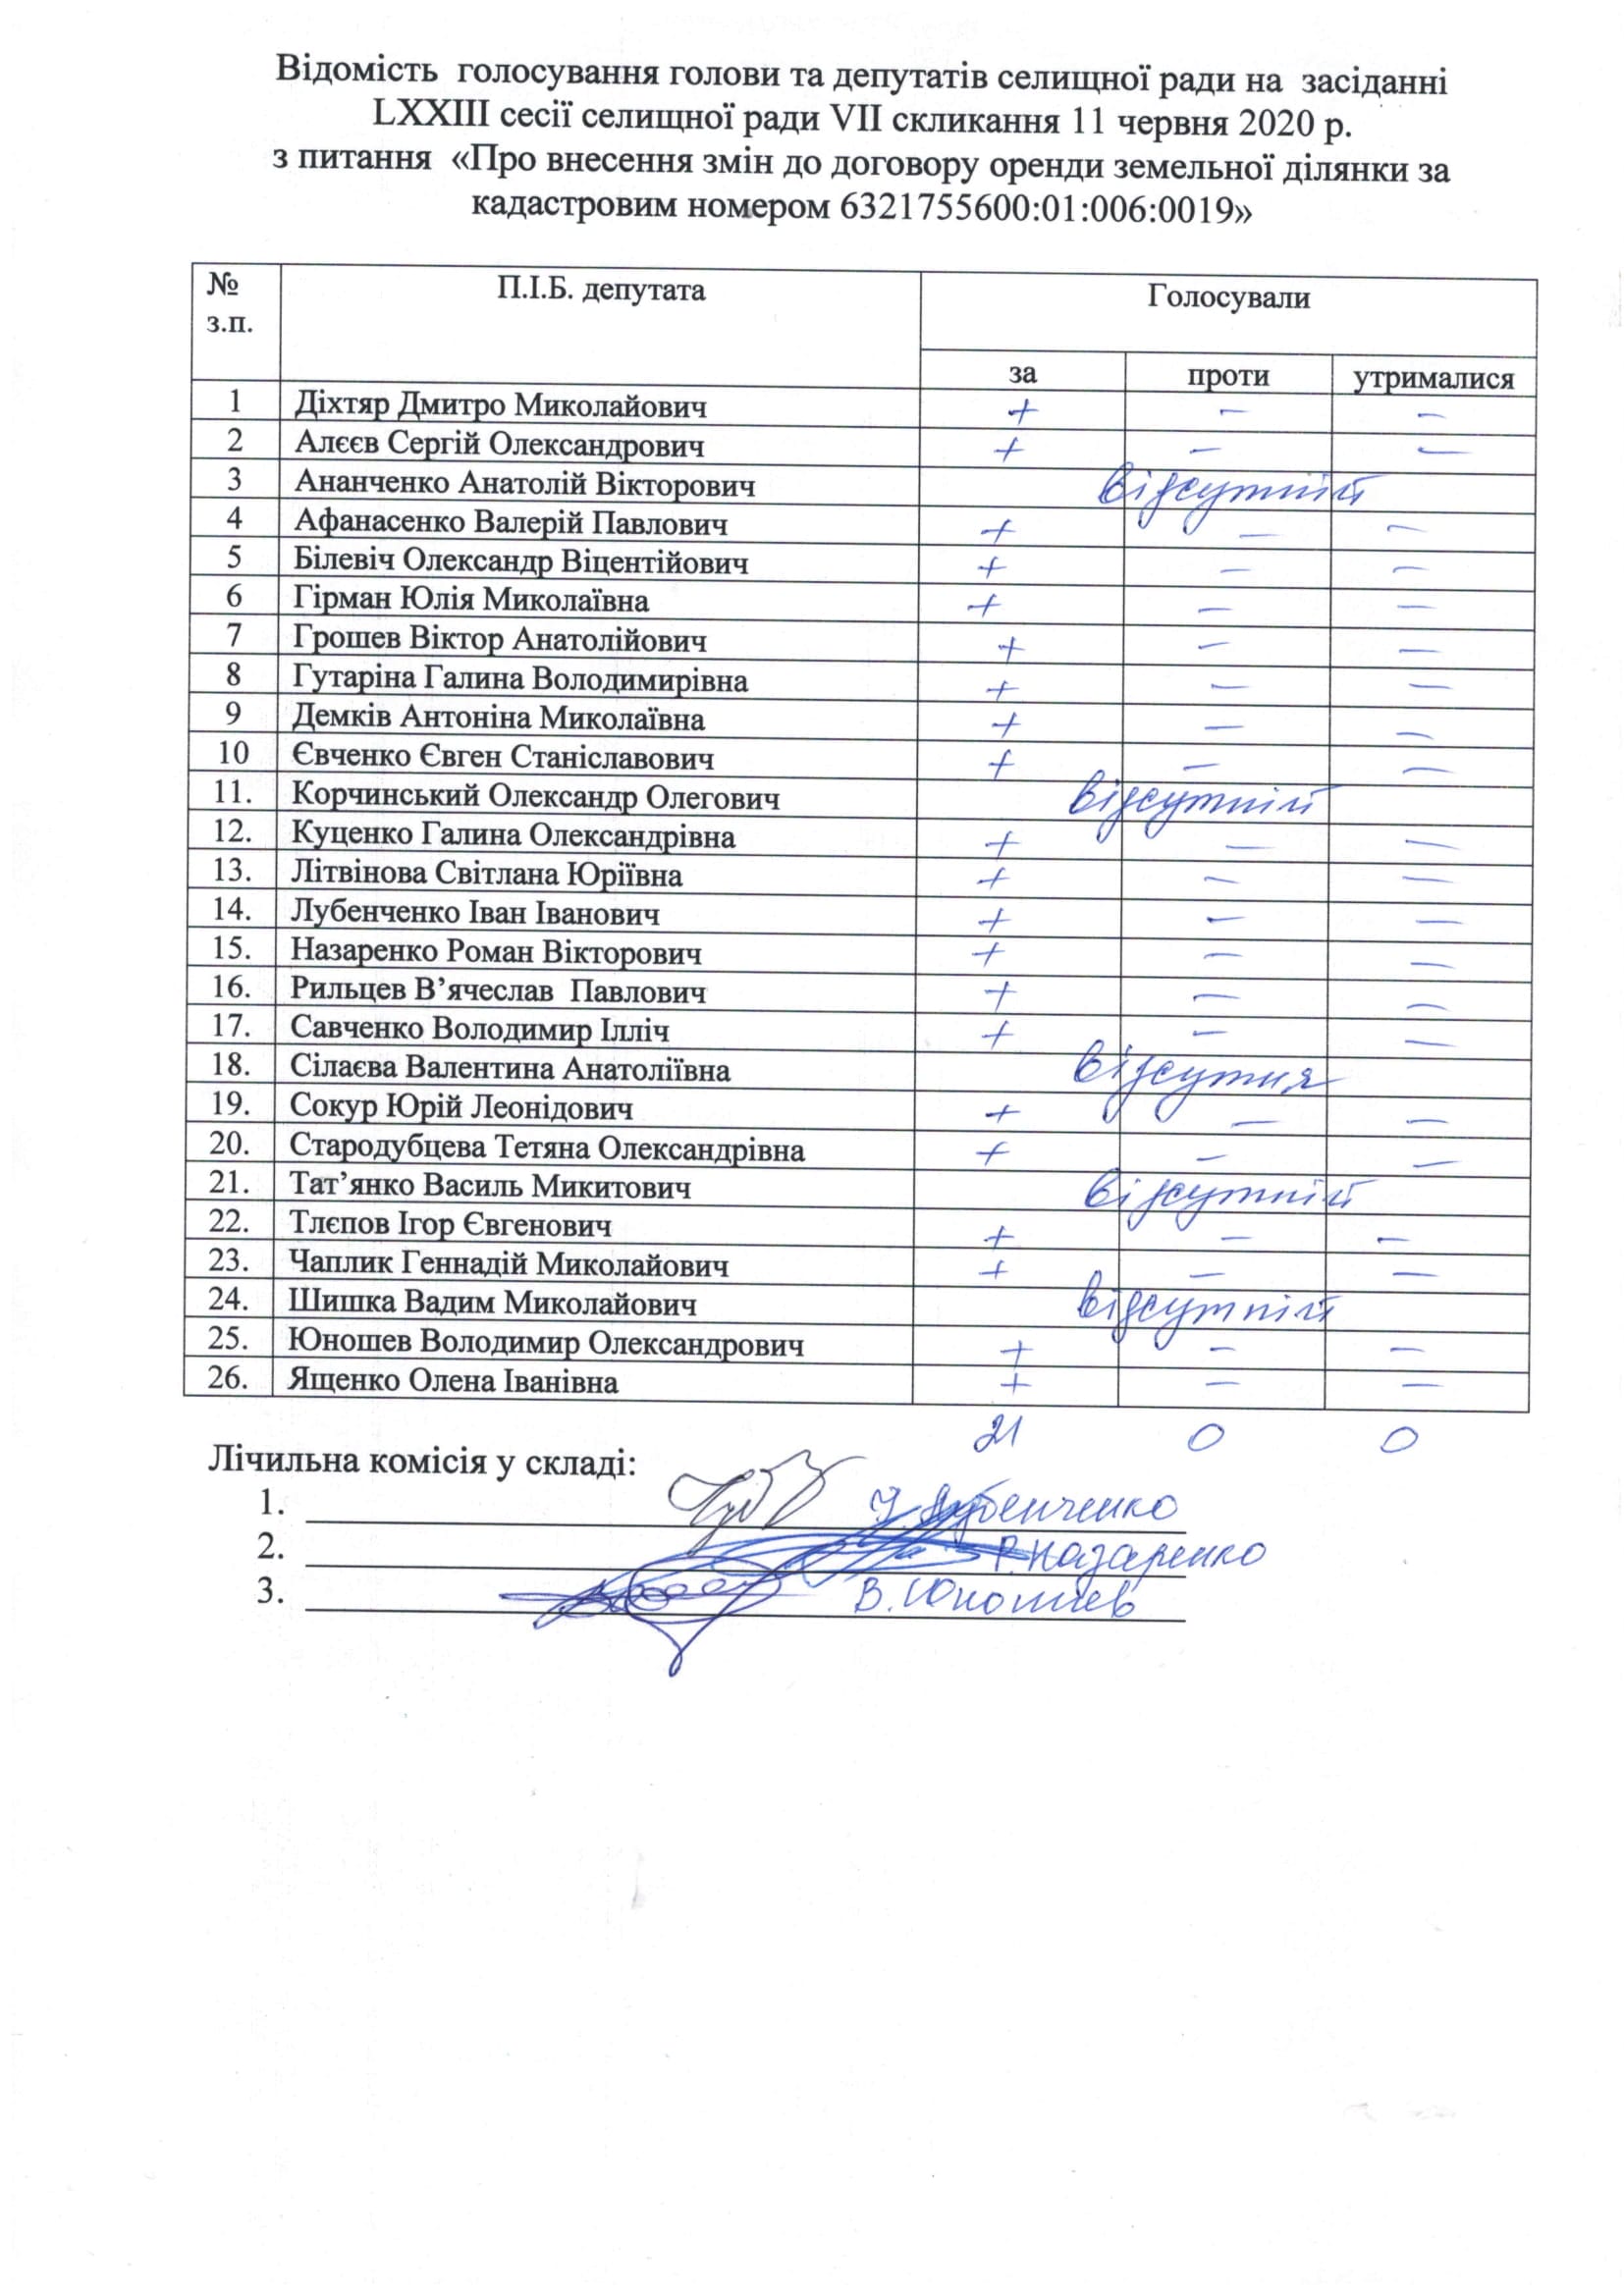 Відомість голосування голови та депутатів селищної ради на засіданні
LXXIII сесії селищної ради VII скликання 11 червня 2020 р.
з питання «Про внесення змін до договору оренди земельної ділянки за
кадастровим номером 6321755600:01:006:0019»
№ з.п. П.І.Б. депутата Голосували
за проти утрималися
1 Діхтяр Дмитро Миколайович + – –
2 Алєєв Сергій Олександрович + – –
3 Ананченко Анатолій Вікторович відсутній
4 Афанасенко Валерій Павлович + – –
5 Білевіч Олександр Віцентійович + – –
6 Гірман Юлія Миколаївна + – –
7 Грошев Віктор Анатолійович + – –
8 Гутаріна Галина Володимирівна + – –
9 Демків Антоніна Миколаївна + – –
10 Євченко Євген Станіславович + – –
11. Корчинський Олександр Олегович відсутній
12. Куценко Галина Олександрівна + – –
13. Літвінова Світлана Юріївна + – –
14. Лубенченко Іван Іванович + – –
15. Назаренко Роман Вікторович + – –
16. Рильцев В’ячеслав Павлович + – –
17. Савченко Володимир Ілліч + – –
18. Сілаєва Валентина Анатоліївна відсутня
19. Сокур Юрій Леонідович + – –
20. Стародубцева Тетяна Олександрівна + – –
21. Тат’янко Василь Микитович відсутній
22. Тлєпов Ігор Євгенович + – –
23. Чаплик Геннадій Миколайович + – –
24. Шишка Вадим Миколайович відсутній
25. Юношев Володимир Олександрович + – –
26. Ященко Олена Іванівна + – –
21 0 0
Лічильна комісія у складі:
1. І. Лубенченко
2. Р. Назаренко
3. В. Юношев